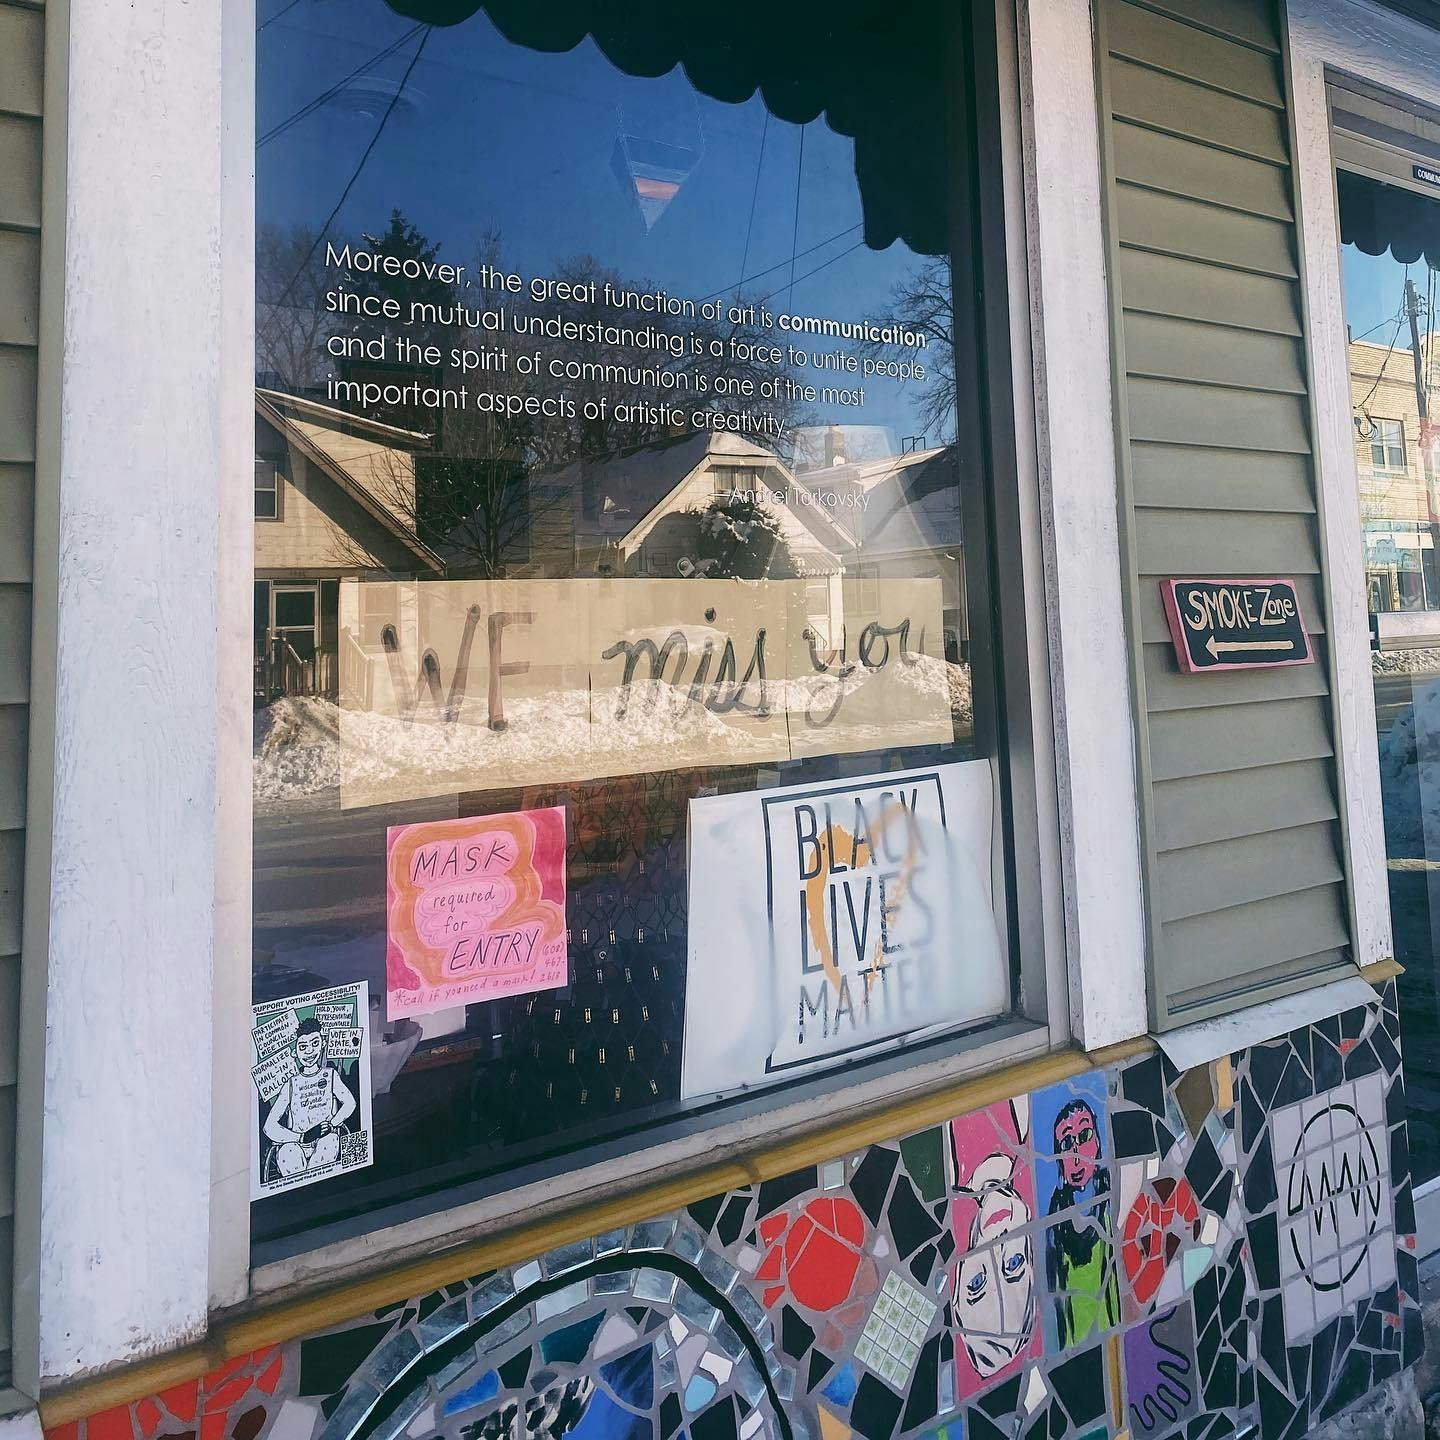 Moreover, the great function of art is communication
since mutual understanding is a force to unite people,
and the spirit of communion is one of the most
important aspects of artistic creativity
—Andrei Tarkovsky
WE miss you
SMOKE Zone
MASK
required
for
ENTRY
*call if you need a mask!
(608)
467-
2618
BLACK
LIVES
MATTER
SUPPORT VOTING ACCESSIBILITY!
PARTICIPATE
IN COMMON
COUNCIL
MEETINGS!
NORMALIZE
MAIL-IN
BALLOTS!
HOLD YOUR
REPRESENTATIVES
ACCOUNTABLE
VOTE IN
STATE
ELECTIONS
disability
vote
coalition